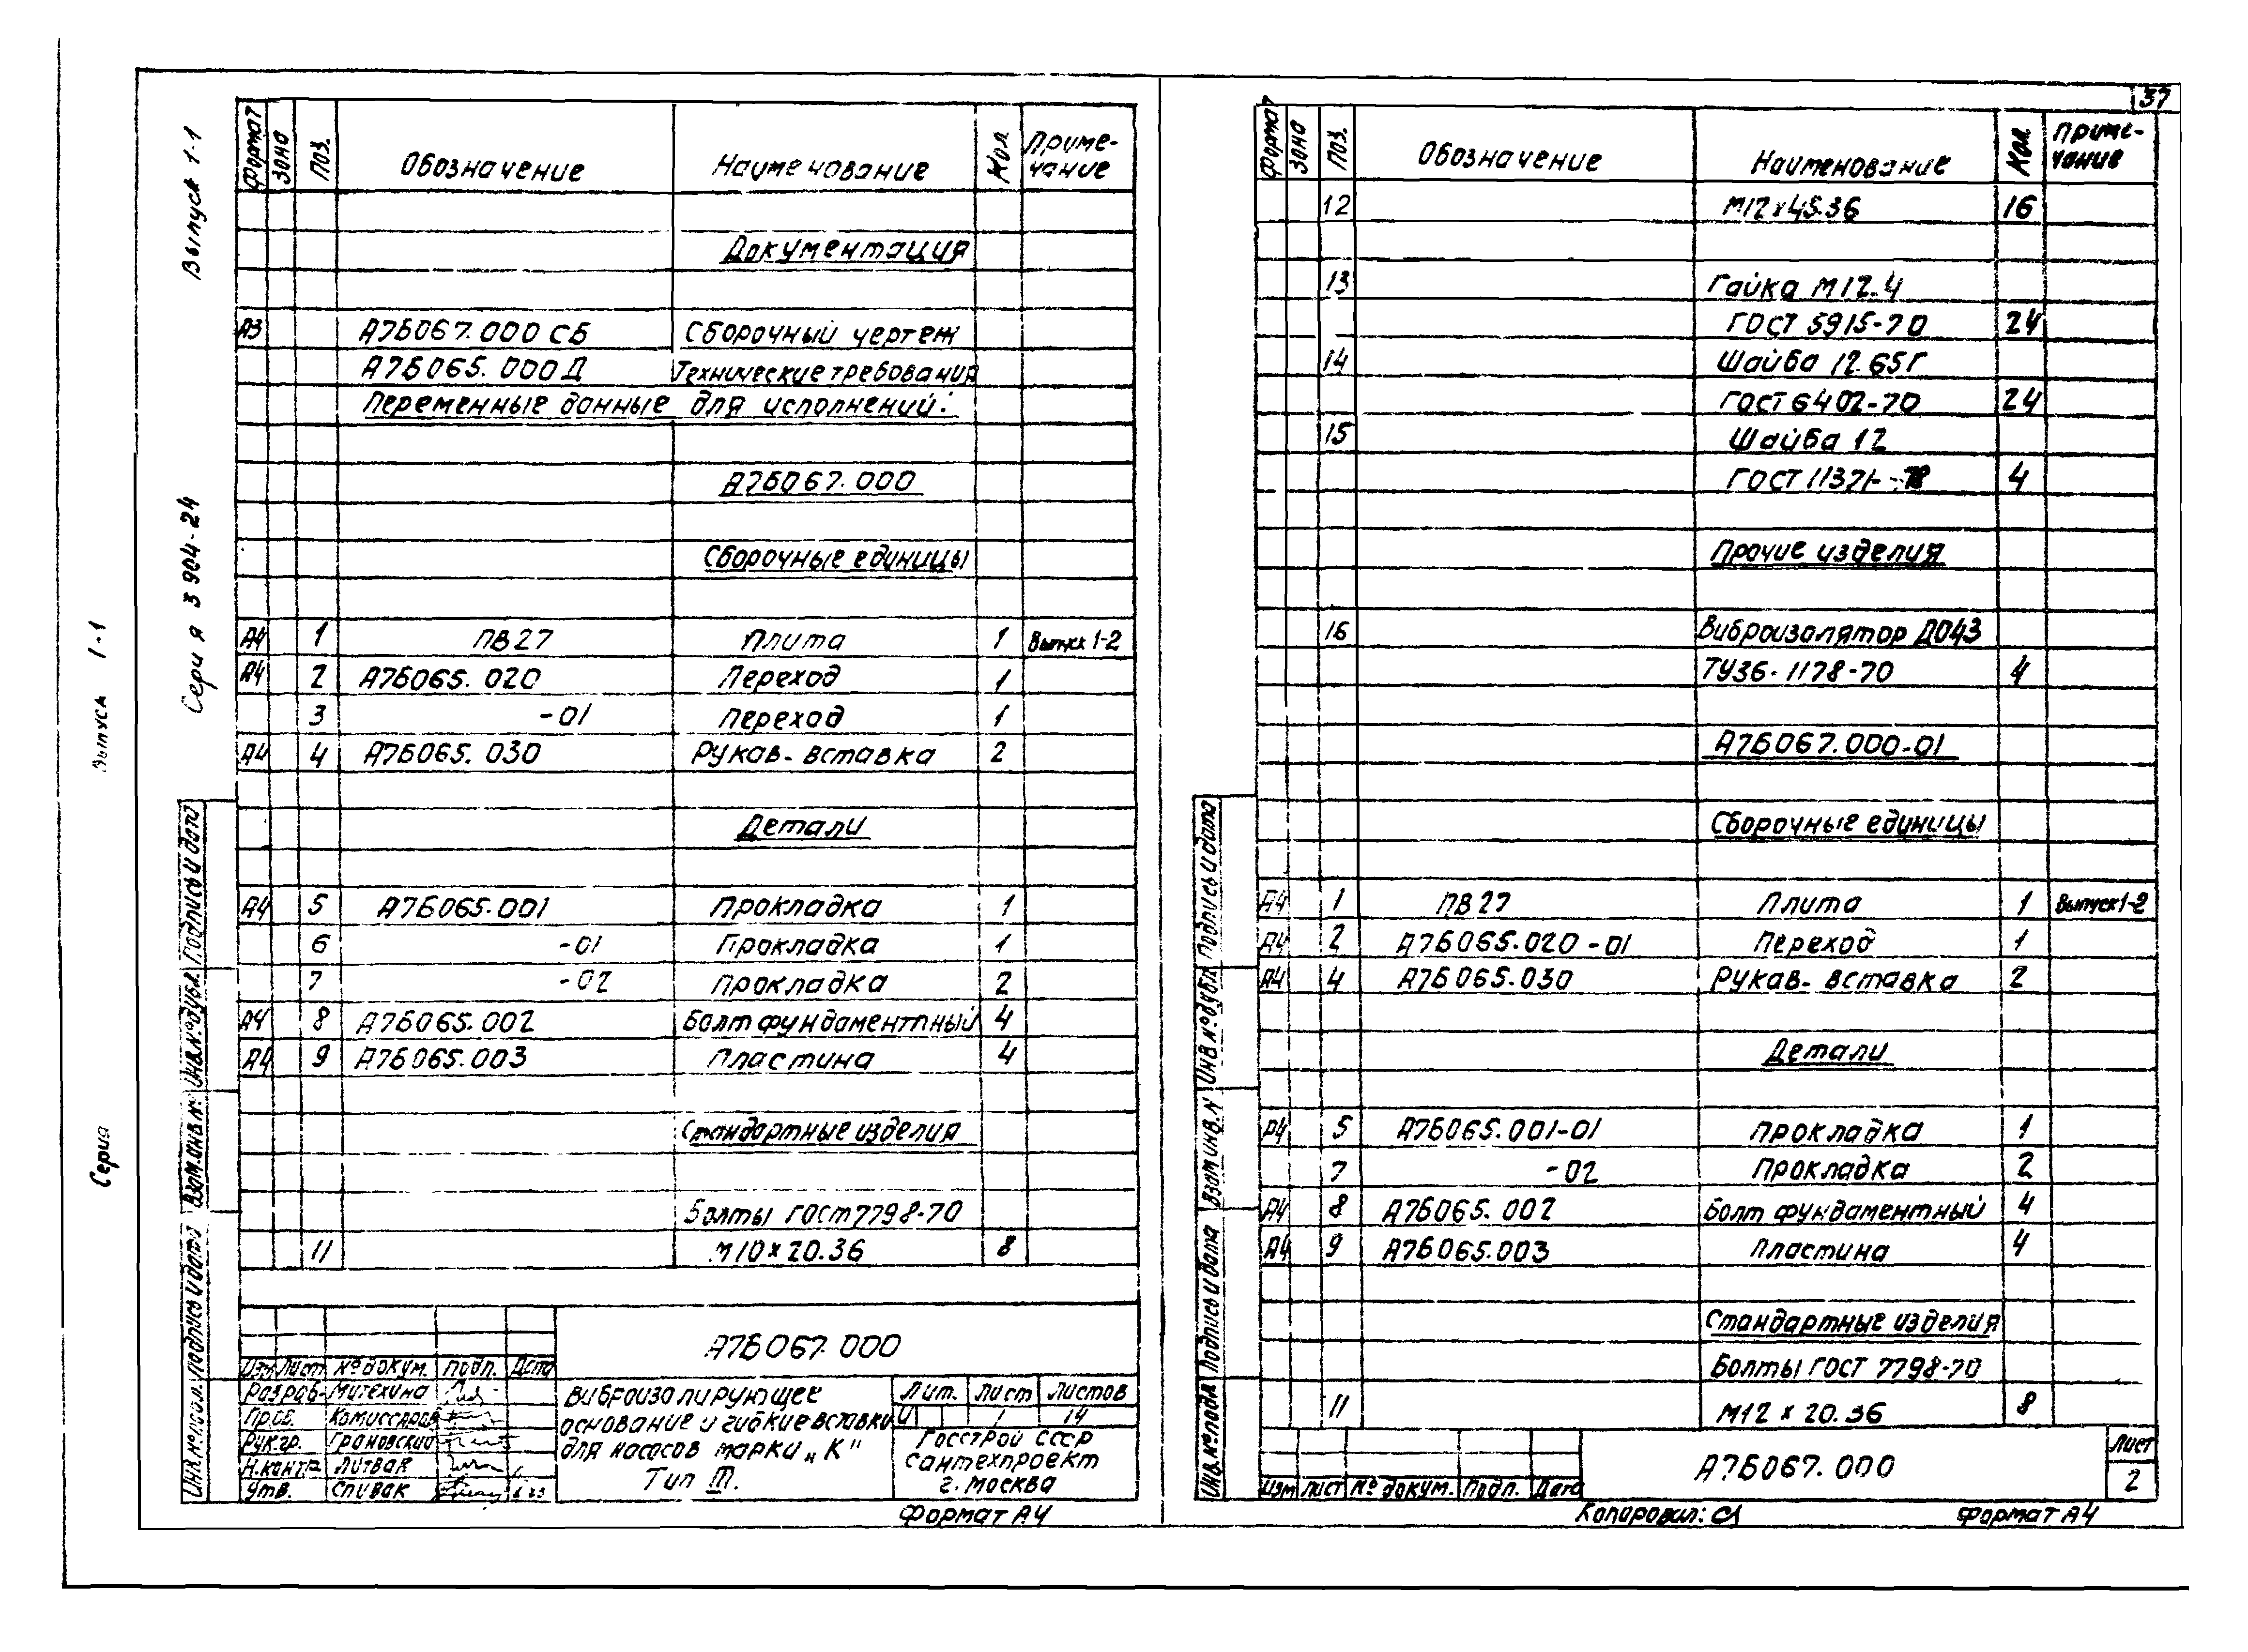 37
Выпуск 1-1
Серия 3 904-24
Выпуск 1-1
Серия
Формат Зона Поз. Обозначение Наименование Кол. Приме-
чание
Документация
А3 А7Б067.000 СБ Сборочный чертеж
А7Б065.000 Д Технические требования
Переменные данные для исполнений:
А7Б067.000
Сборочные единицы
А4 1 ПВ27 Плита 1 Выпуск 1-2
А4 2 А7Б065.020 Переход 1
3 -01 Переход 1
А4 4 А7Б065.030 Рукав-вставка 2
Детали
А4 5 А7Б065.001 Прокладка 1
6 -01 Прокладка 1
7 -02 Прокладка 2
А4 8 А7Б065.002 Болт фундаментный 4
А4 9 А7Б065.003 Пластина 4
Стандартные изделия
Болты ГОСТ 7798-70
11 М10х20.36 8
Инв.№подл. Подпись и дата Взам.инв.№ Инв.№дубл. Подпись и дата
А7Б067.000
Изм Лист № докум. Подп. Дата
Разраб. Митехина
Пров. Комиссаров
Рук.гр. Грановский
Н.контр Литвак
Утв. Спивак
Виброизолирующее
основание и гибкие вставки
для насосов марки „К"
Тип III.
Лит. Лист Листов
И 1 14
Госстрой СССР
Сантехпроект
г. Москва
Формат А4
Формат Зона Поз. Обозначение Наименование Кол. Приме-
чание
12 М12х45.36 16
13 Гайка М12.4
ГОСТ 5915-70 24
14 Шайба 12.65Г
ГОСТ 6402-70 24
15 Шайба 12
ГОСТ 11371-78 4
Прочие изделия
16 Виброизолятор ДО43
ТУ36-1178-70 4
А7Б067.000-01
Сборочные единицы
А4 1 ПВ27 Плита 1 Выпуск 1-2
А4 2 А7Б065.020-01 Переход 1
А4 4 А7Б065.030 Рукав-вставка 2
Детали
А4 5 А7Б065.001-01 Прокладка 1
7 -02 Прокладка 2
А4 8 А7Б065.002 Болт фундаментный 4
А4 9 А7Б065.003 Пластина 4
Стандартные изделия
Болты ГОСТ 7798-70
11 М12 х 20.36 8
Инв.№подл. Подпись и дата Взам инв.№ Инв.№дубл. Подпись и дата
Изм Лист № докум. Подп. Дата
А7Б067.000
Лист
2
Копировал:
Формат А4